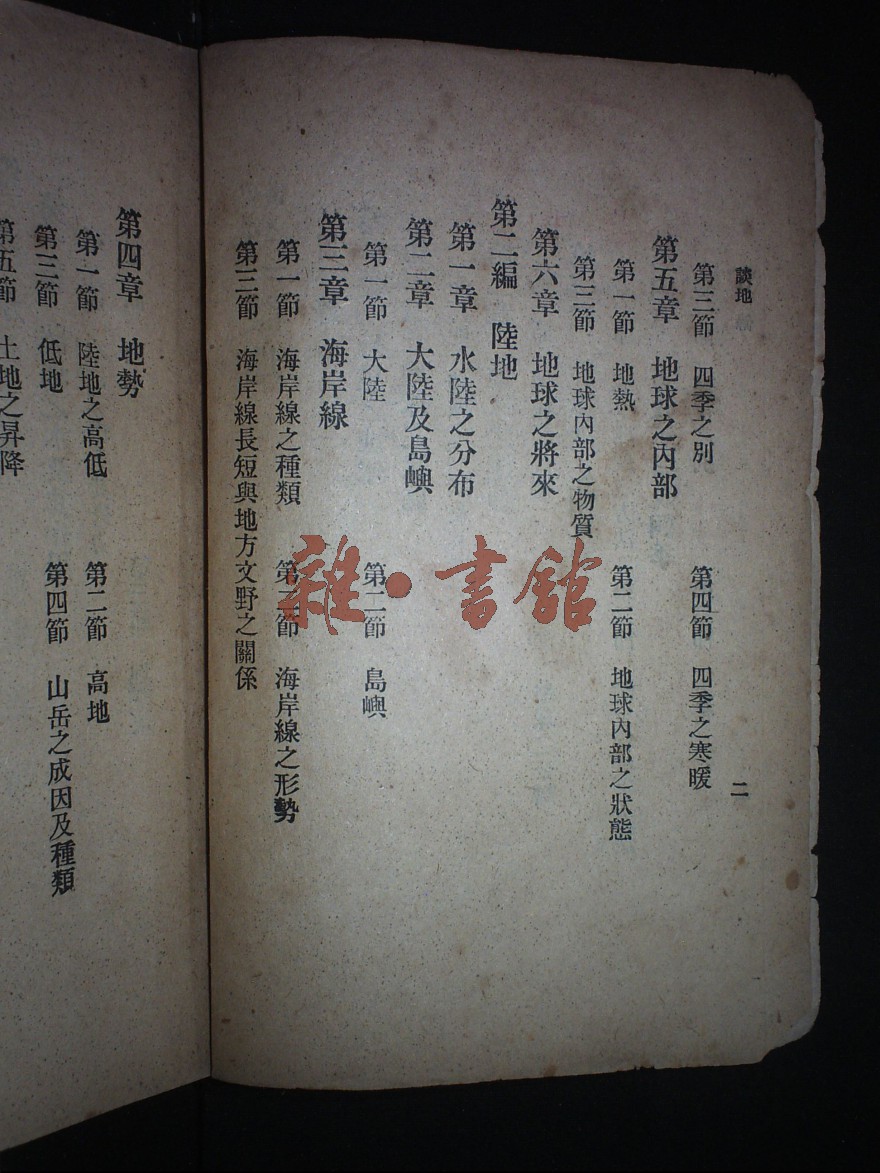 談地
二
第三節　四季之別　第四節　四季之寒暖
第五章　地球之內部
第一節　地熱　第二節　地球內部之狀態
第三節　地球內部之物質
第六章　地球之將來
第二編　陸地
第一章　水陸之分布
第二章　大陸及島嶼
第一節　大陸　第二節　島嶼
第三章　海岸線
第一節　海岸線之種類　第二節　海岸線之形勢
第三節　海岸線長短與地方文野之關係
第四章　地勢
第一節　陸地之高低　第二節　高地
第三節　低地　第四節　山岳之成因及種類
第五節　土地之昇降
雜·書館